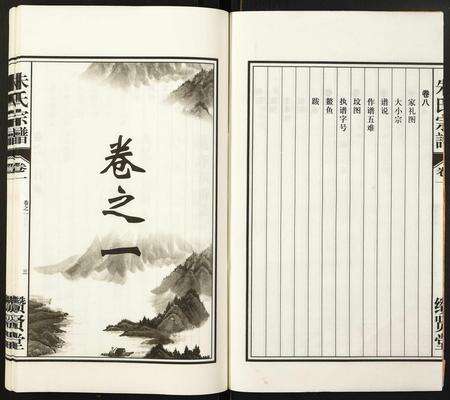 朱氏宗譜
卷一
缵贤堂
卷八
家礼图
大小宗
谱说
作谱五难
坟图
执谱字号
鳌鱼
跋
卷之一
朱氏宗譜
卷一
卷之一
三
缵贤堂